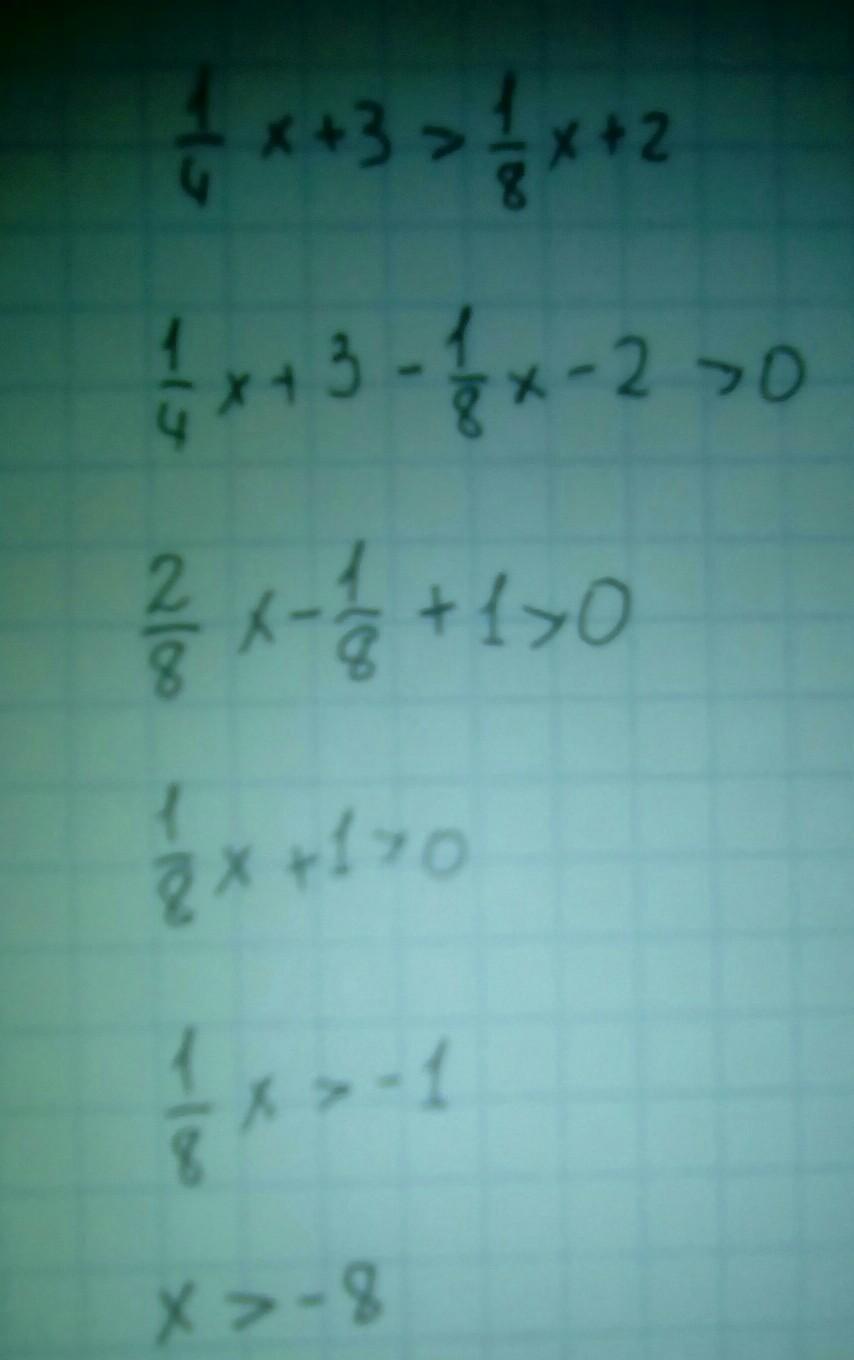 1/4 x + 3 > 1/8 x + 2
1/4 x + 3 - 1/8 x - 2 > 0
2/8 x - 1/8 + 1 > 0
1/8 x + 1 > 0
1/8 x > -1
x > -8